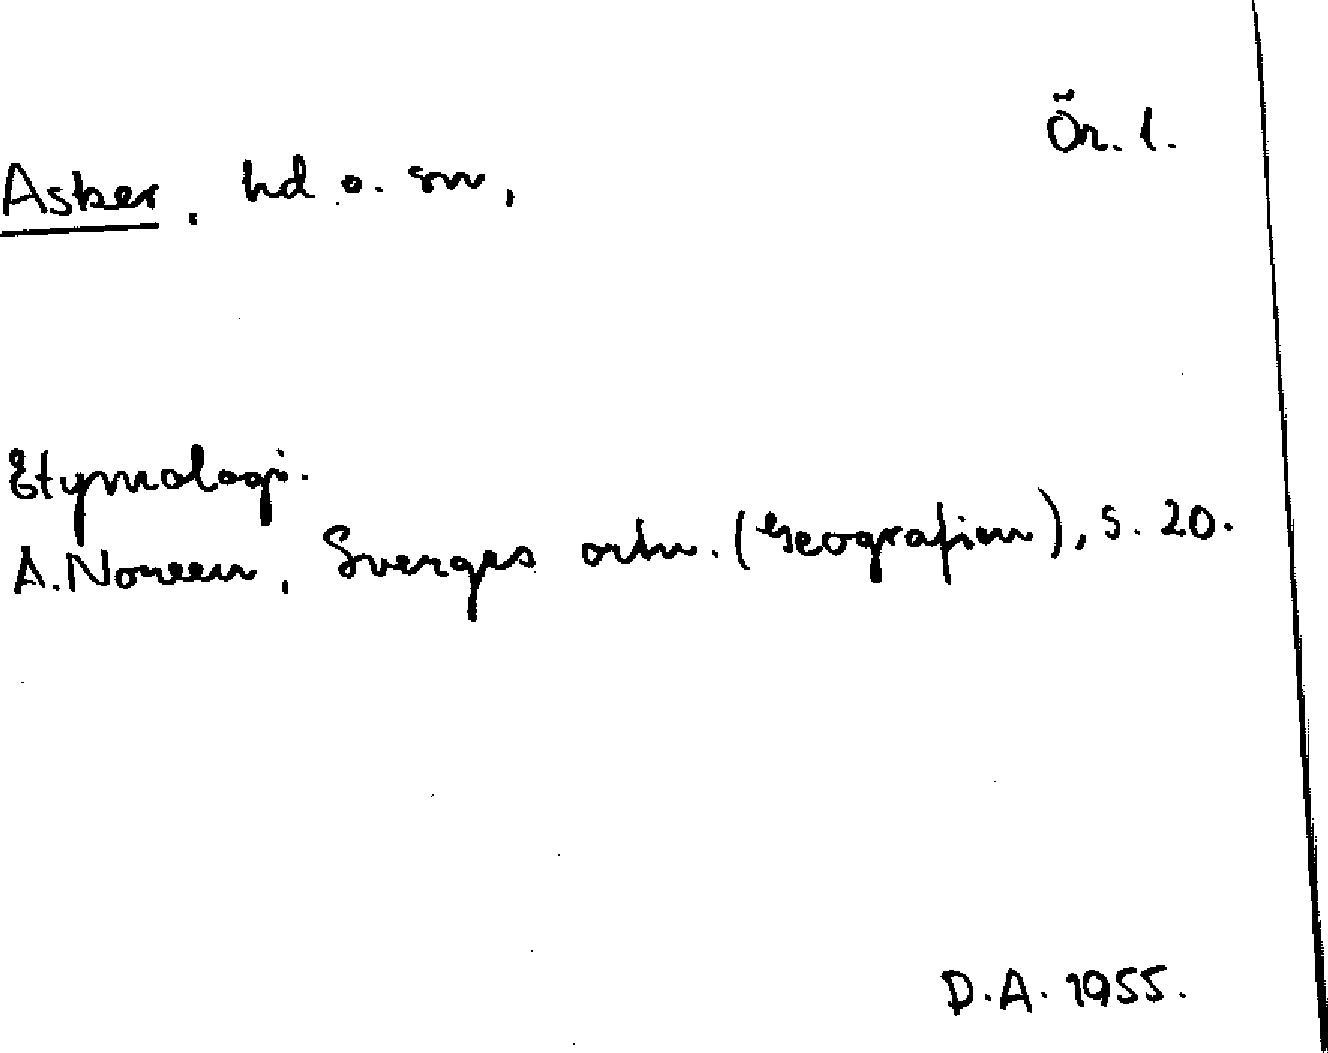 Ör. l.
Asker, hd o. sn,
Etymologi.
A. Noreen, Sverges ortn. (Geografien), s. 20.
D.A. 1955.